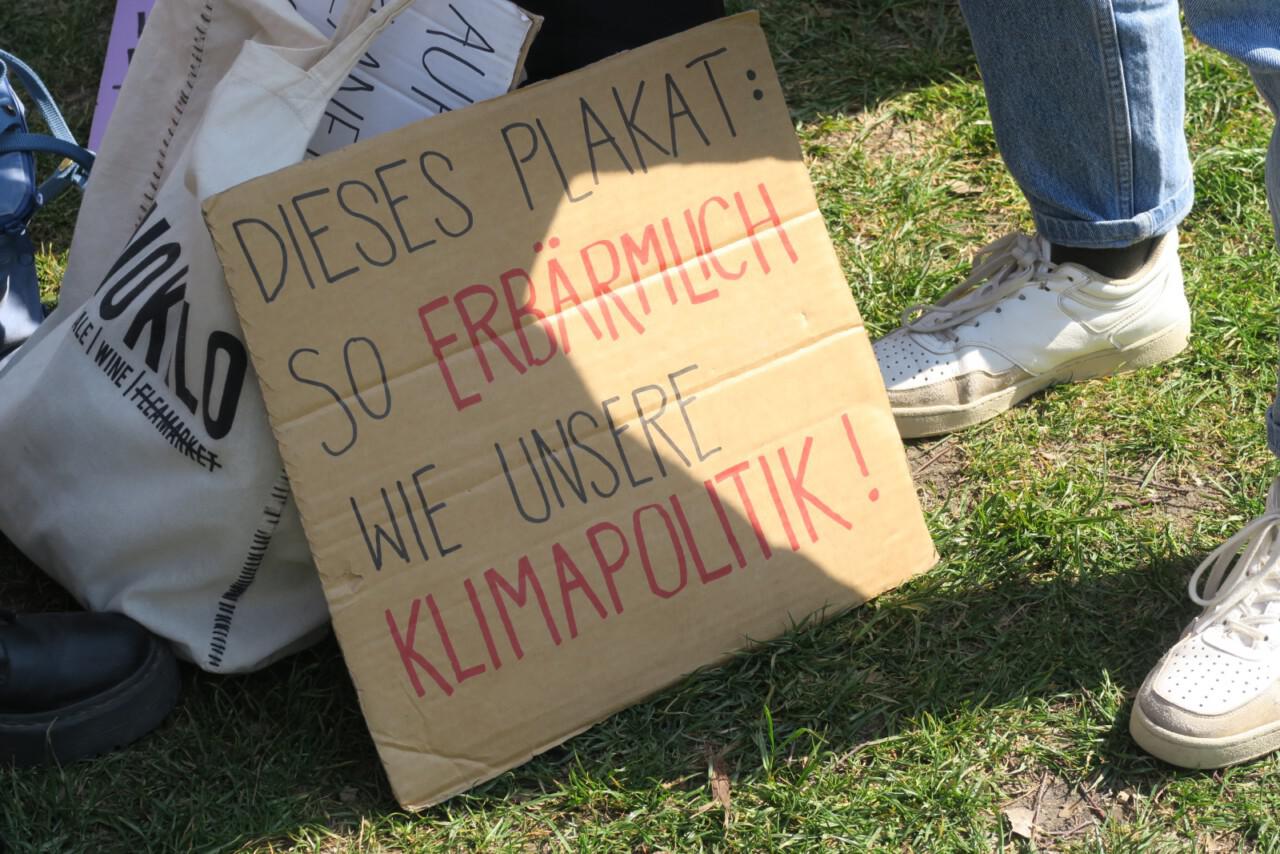 DIESES PLAKAT:
SO ERBÄRMLICH
WIE UNSERE
KLIMAPOLITIK!
WINE | FLEAMARKET